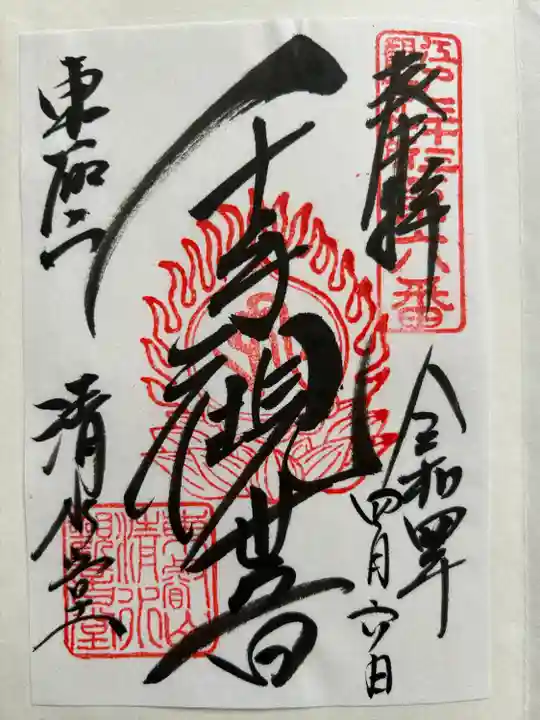 奉拝
令和四年
四月六日
千手観世音
東叡山
清水堂
第六番
東叡山
清水
観音堂